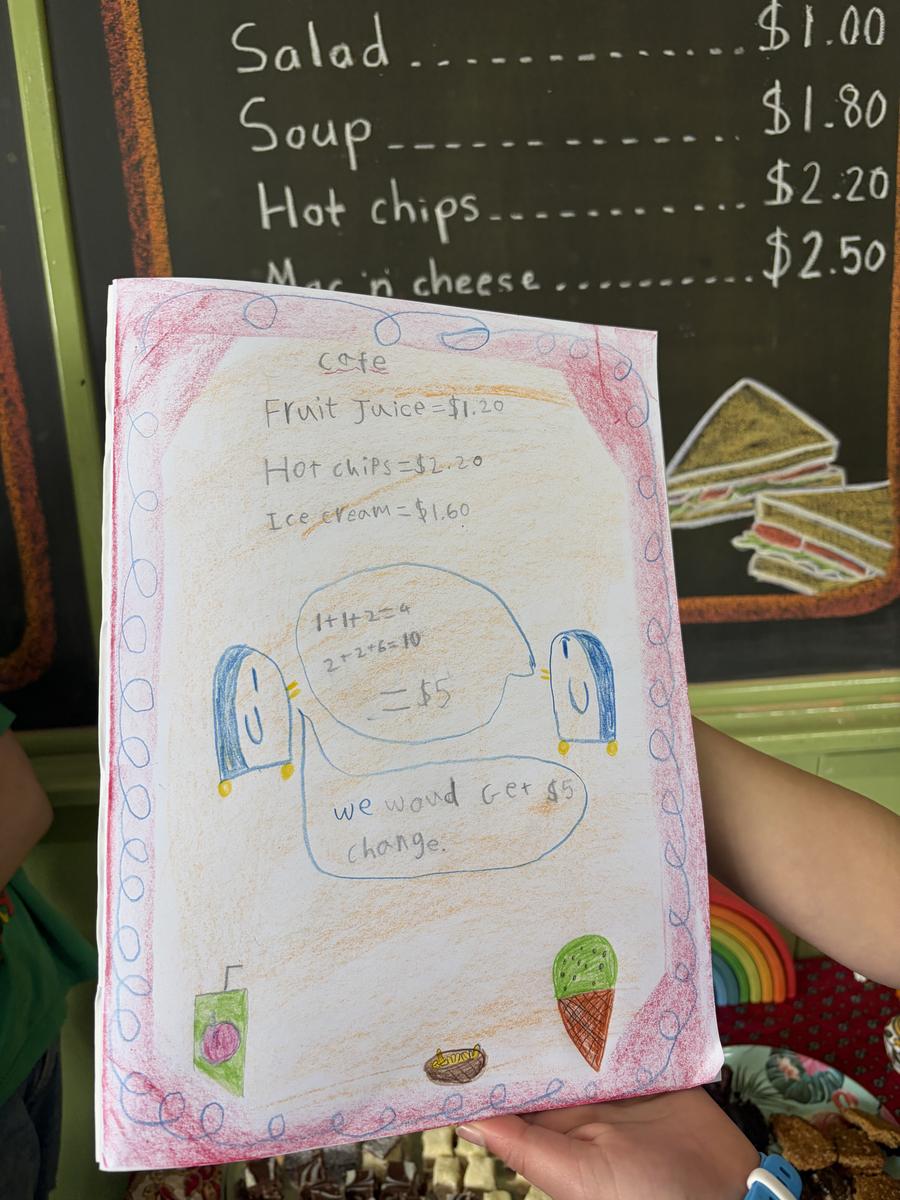 Salad ............. $1.00
Soup ------------- $1.80
Hot chips............ $2.20
Mac 'n' cheese .......... $2.50
cafe
Fruit Juice=$1.20
Hot chips=$2.20
Ice cream=$1.60
1+1+2=4
2+2+6=10
=$5
we woud Get $5
change.